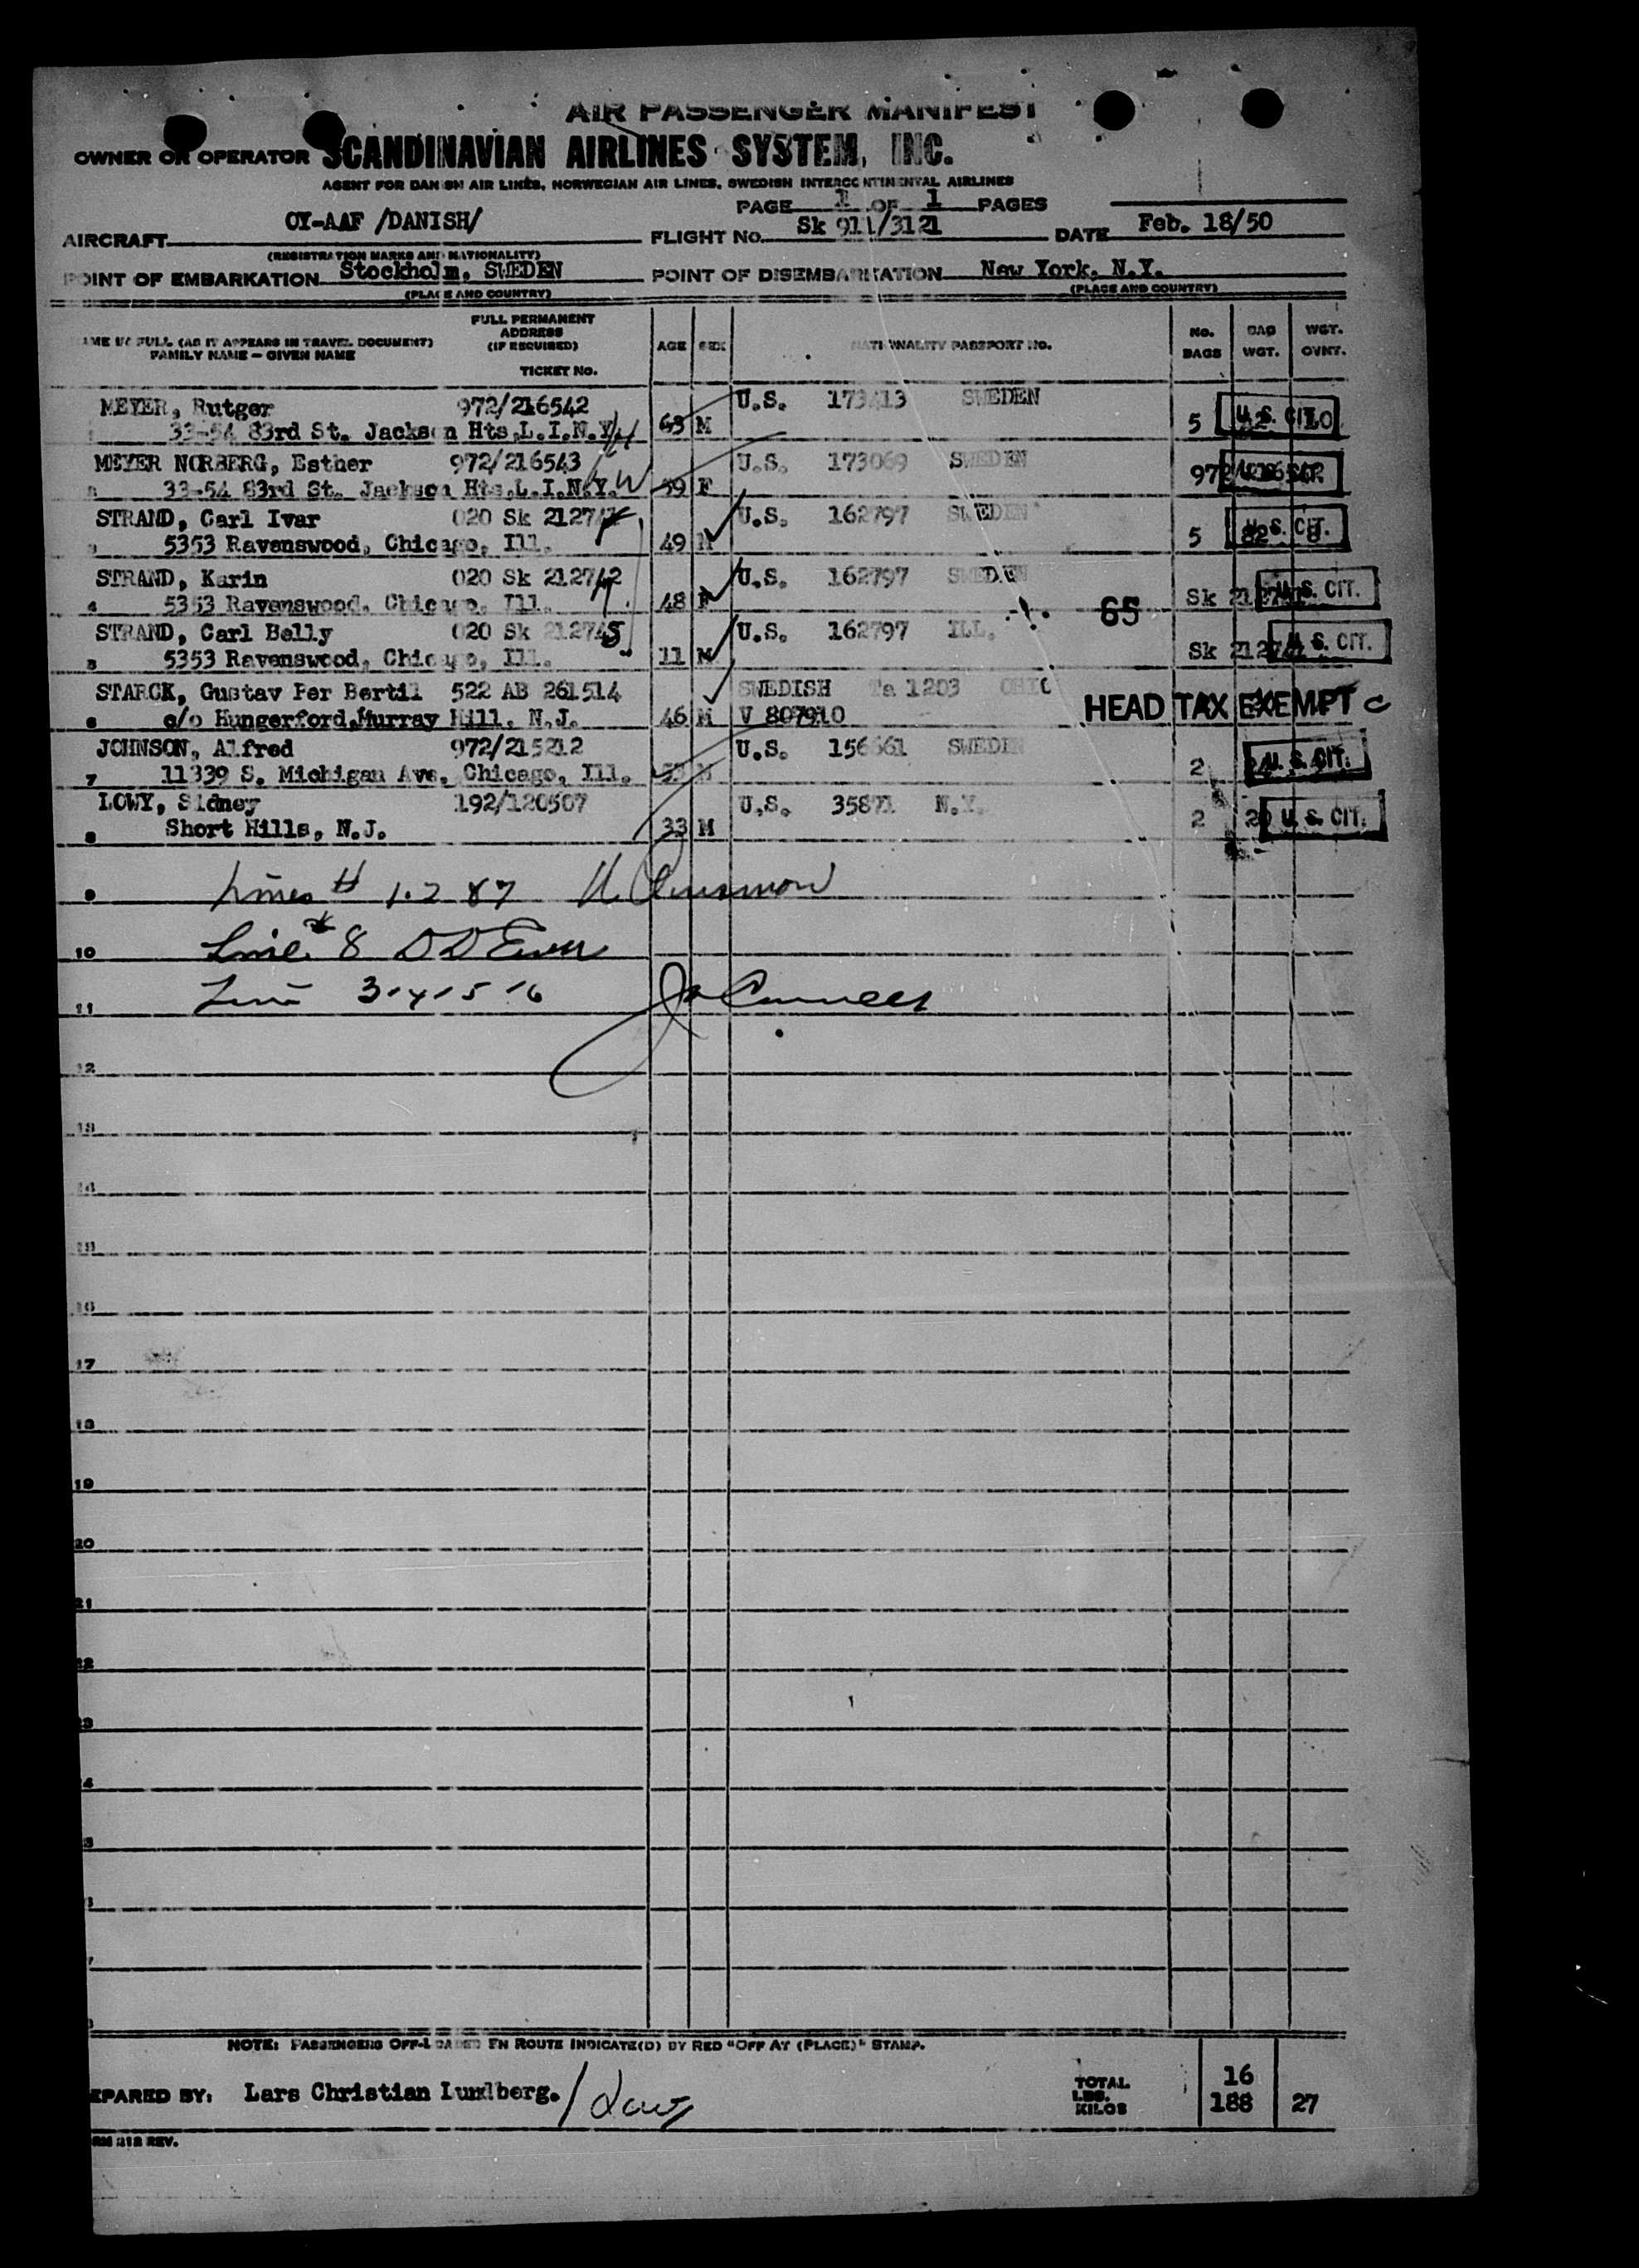 AIR PASSENGER MANIFEST
OWNER OR OPERATOR SCANDINAVIAN AIRLINES SYSTEM, INC.
AGENT FOR DANISH AIR LINES, NORWEGIAN AIR LINES, SWEDISH INTERCONTINENTAL AIRLINES
PAGE 1 OF 1 PAGES
AIRCRAFT OY-AAF /DANISH/ FLIGHT No. Sk 911/3121 DATE Feb. 18/50
(REGISTRATION MARKS AND NATIONALITY)
POINT OF EMBARKATION Stockholm, SWEDEN POINT OF DISEMBARKATION New York, N.Y.
(PLACE AND COUNTRY) (PLACE AND COUNTRY)
NAME IN FULL (AS IT APPEARS IN TRAVEL DOCUMENT) FAMILY NAME — GIVEN NAME
FULL PERMANENT ADDRESS (IF REQUIRED) TICKET No.
AGE SEX NATIONALITY PASSPORT NO. No. BAGS BAG WGT. WGT. OVNT.
MEYER, Rutger 972/216542 U.S. SWEDEN
33-54 83rd St. Jackson Hts,L.I.N.Y. M 5 U.S. CIT. 10
MEYER NORBERG, Esther 972/216543 U.S. 173069 SWEDEN
33-54 83rd St. Jackson Hts,L.I.N.Y. 59 F
STRAND, Carl Ivar 020 Sk U.S. 162797 SWEDEN
5353 Ravenswood, Chicago, Ill. 49 M 5 82 8 U.S. CIT.
STRAND, Karin 020 Sk 212742 U.S. 162797 SWEDEN
4 5353 Ravenswood, Chicago, Ill. 48 F Sk U.S. CIT.
65
STRAND, Carl Belly 020 Sk U.S. 162797 ILL.
5353 Ravenswood, Chicago, Ill. 11 M Sk U.S. CIT.
STARCK, Gustav Per Bertil 522 AB 261514 SWEDISH 1203
6 c/o Hungerford,Murray Hill, N.J. 46 M V 807910 HEAD TAX EXEMPT C
JOHNSON, Alfred 972/215212 U.S. SWEDEN
7 11339 S. Michigan Ave, Chicago, Ill. M 2 U.S. CIT.
LOWY, Sidney 192/120507 U.S. 35871 N.Y.
8 Short Hills, N.J. 33 M 2 U.S. CIT.
9 Lines # 1-2 & 7
10 Line # 8
11 Line 3-4-5-6
12
13
14
15
16
17
18
19
20
21
22
23
NOTE: PASSENGERS OFF-LOADED EN ROUTE INDICATE(D) BY RED "OFF AT (PLACE)" STAMP.
EPARED BY: Lars Christian Lundberg.
TOTAL 16
LBS.
KILOS 188 27
RM 212 REV.